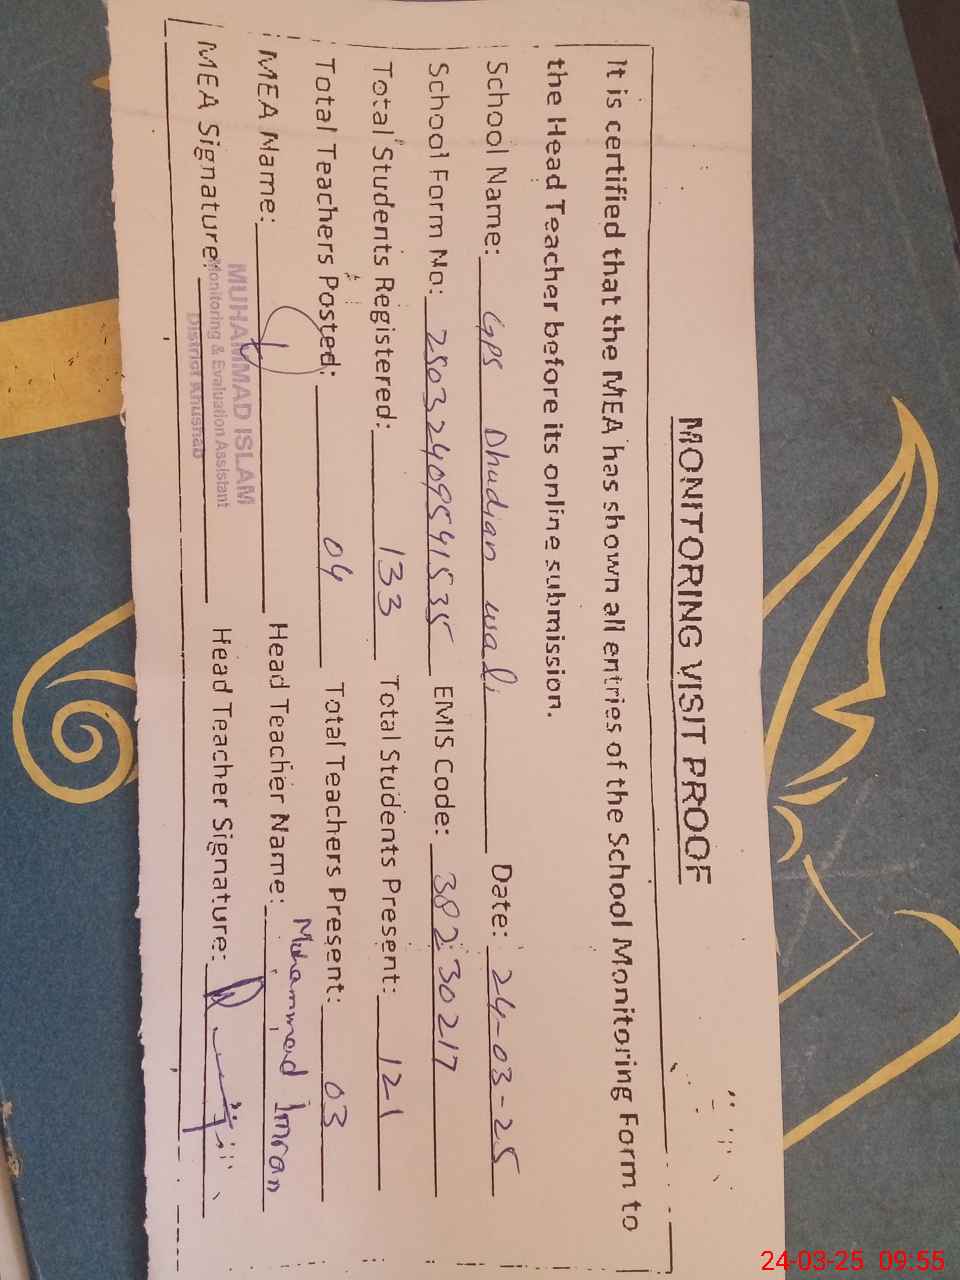 MONITORING VISIT PROOF
It is certified that the MEA has shown all entries of the School Monitoring Form to
the Head Teacher before its online submission.
School Name: GPS Dhudian wali Date: 24-03-25
School Form No: 25032409541535 EMIS Code: 38230217
Total Students Registered: 133 Total Students Present: 121
Total Teachers Posted: 04 Total Teachers Present: 03
MEA Name: Head Teacher Name: Muhammad Imran
MUHAMMAD ISLAM
MEA Signature: Head Teacher Signature:
Monitoring & Evaluation Assistant
District Khushab
24-03-25 09:55